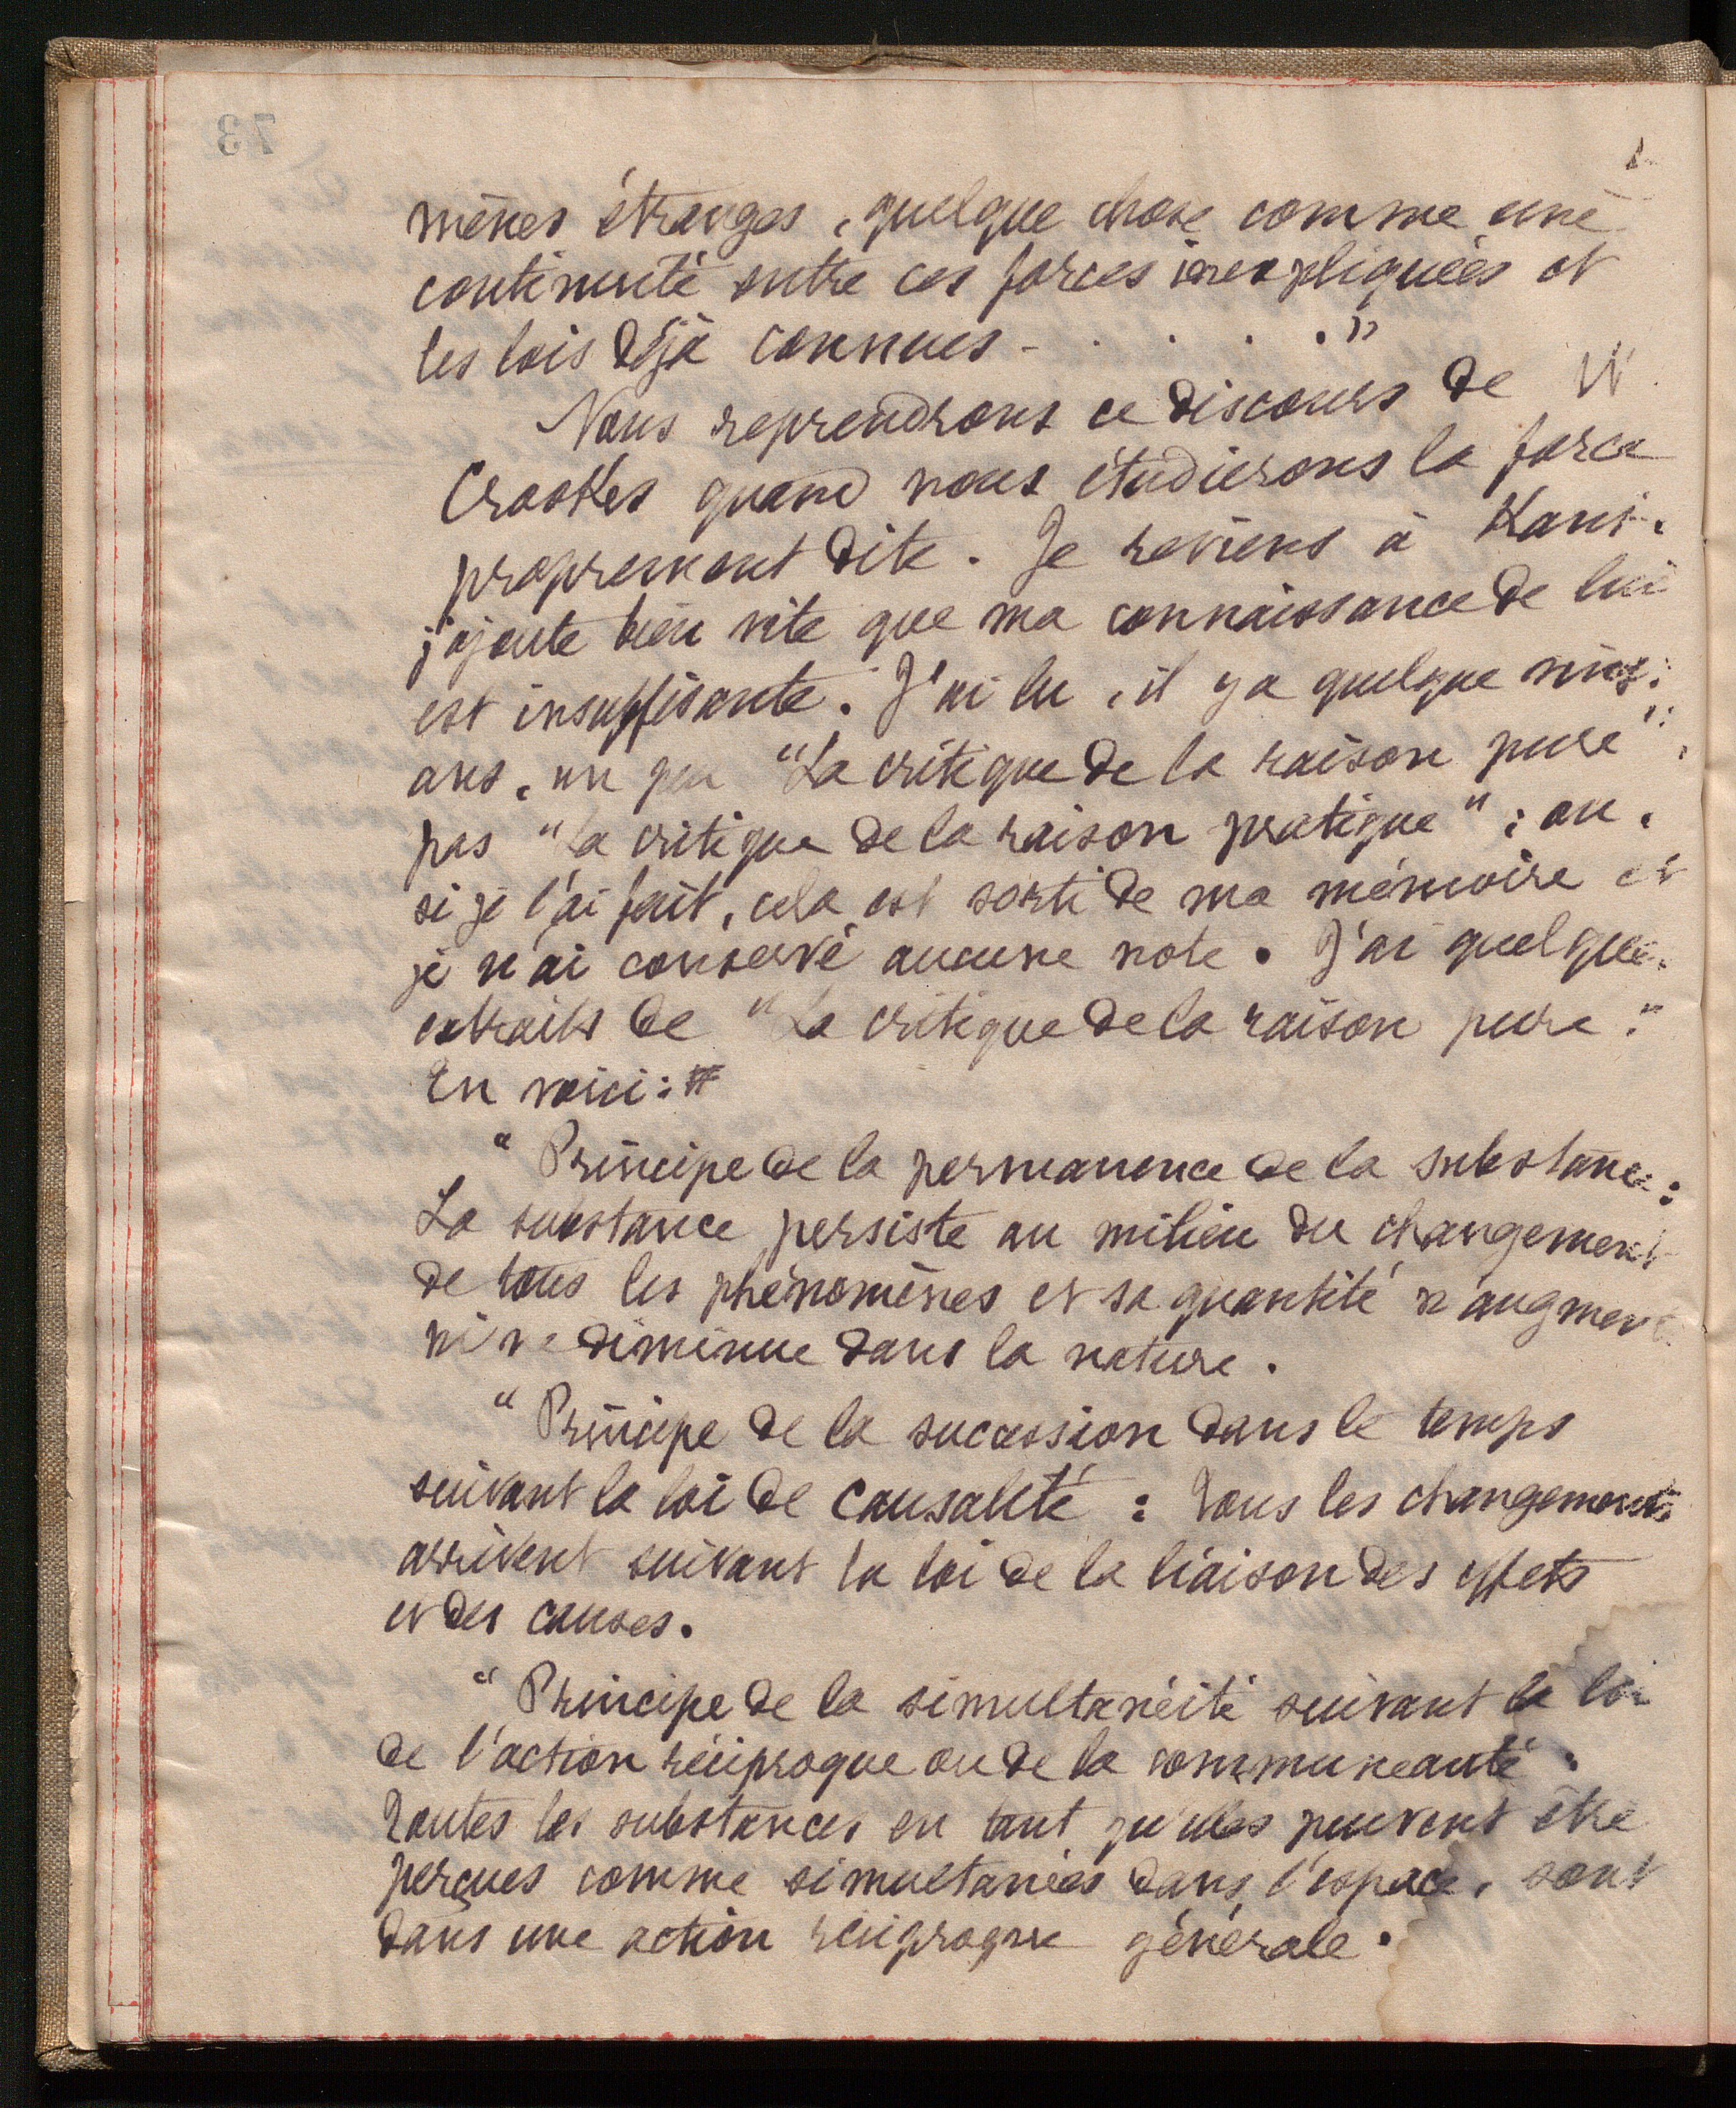 mènes étranges, quelque chose comme une
continuité entre ces forces inexpliquées et
les lois déjà connues - . . . ."
Nous reprendrons ce discours de W.
Crookes quand nous étudierons la force
proprement dite. Je reviens à Kant.
j'ajoute bien vite que ma connaissance de lui
est insuffisante. J'ai lu, il y a quelque vingt
ans, un peu "La critique de la raison pure",
pas "la critique de la raison pratique"; ou,
si je l'ai fait, cela est sorti de ma mémoire et
je n'ai conservé aucune note. J'ai quelques
extraits de "La critique de la raison pure".
En voici :
"Principe de la permanence de la substance :
La substance persiste au milieu du changement
de tous les phénomènes et sa quantité n'augmente
ni ne diminue dans la nature.
"Principe de la succession dans le temps
suivant la loi de causalité : Tous les changements
arrivent suivant la loi de la liaison des effets
et des causes.
"Principe de la simultanéité suivant la loi
de l'action réciproque ou de la communauté :
Toutes les substances en tant qu'elles peuvent être
perçues comme simultanées dans l'espace, sont
dans une action réciproque générale.